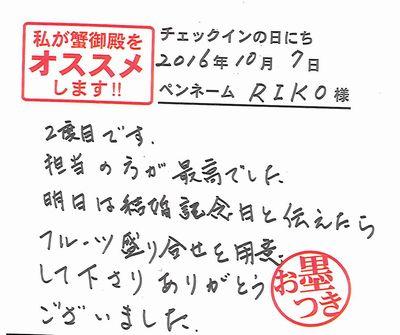 私が蟹御殿を
オススメ
します!!
チェックインの日にち
2016年10月7日
ペンネーム RIKO様
2度目です.
担当の方が最高でした.
明日は結婚記念日と伝えたら
フルーツ盛り合せを用意
して下さりありがとう
ございました.
お墨つき